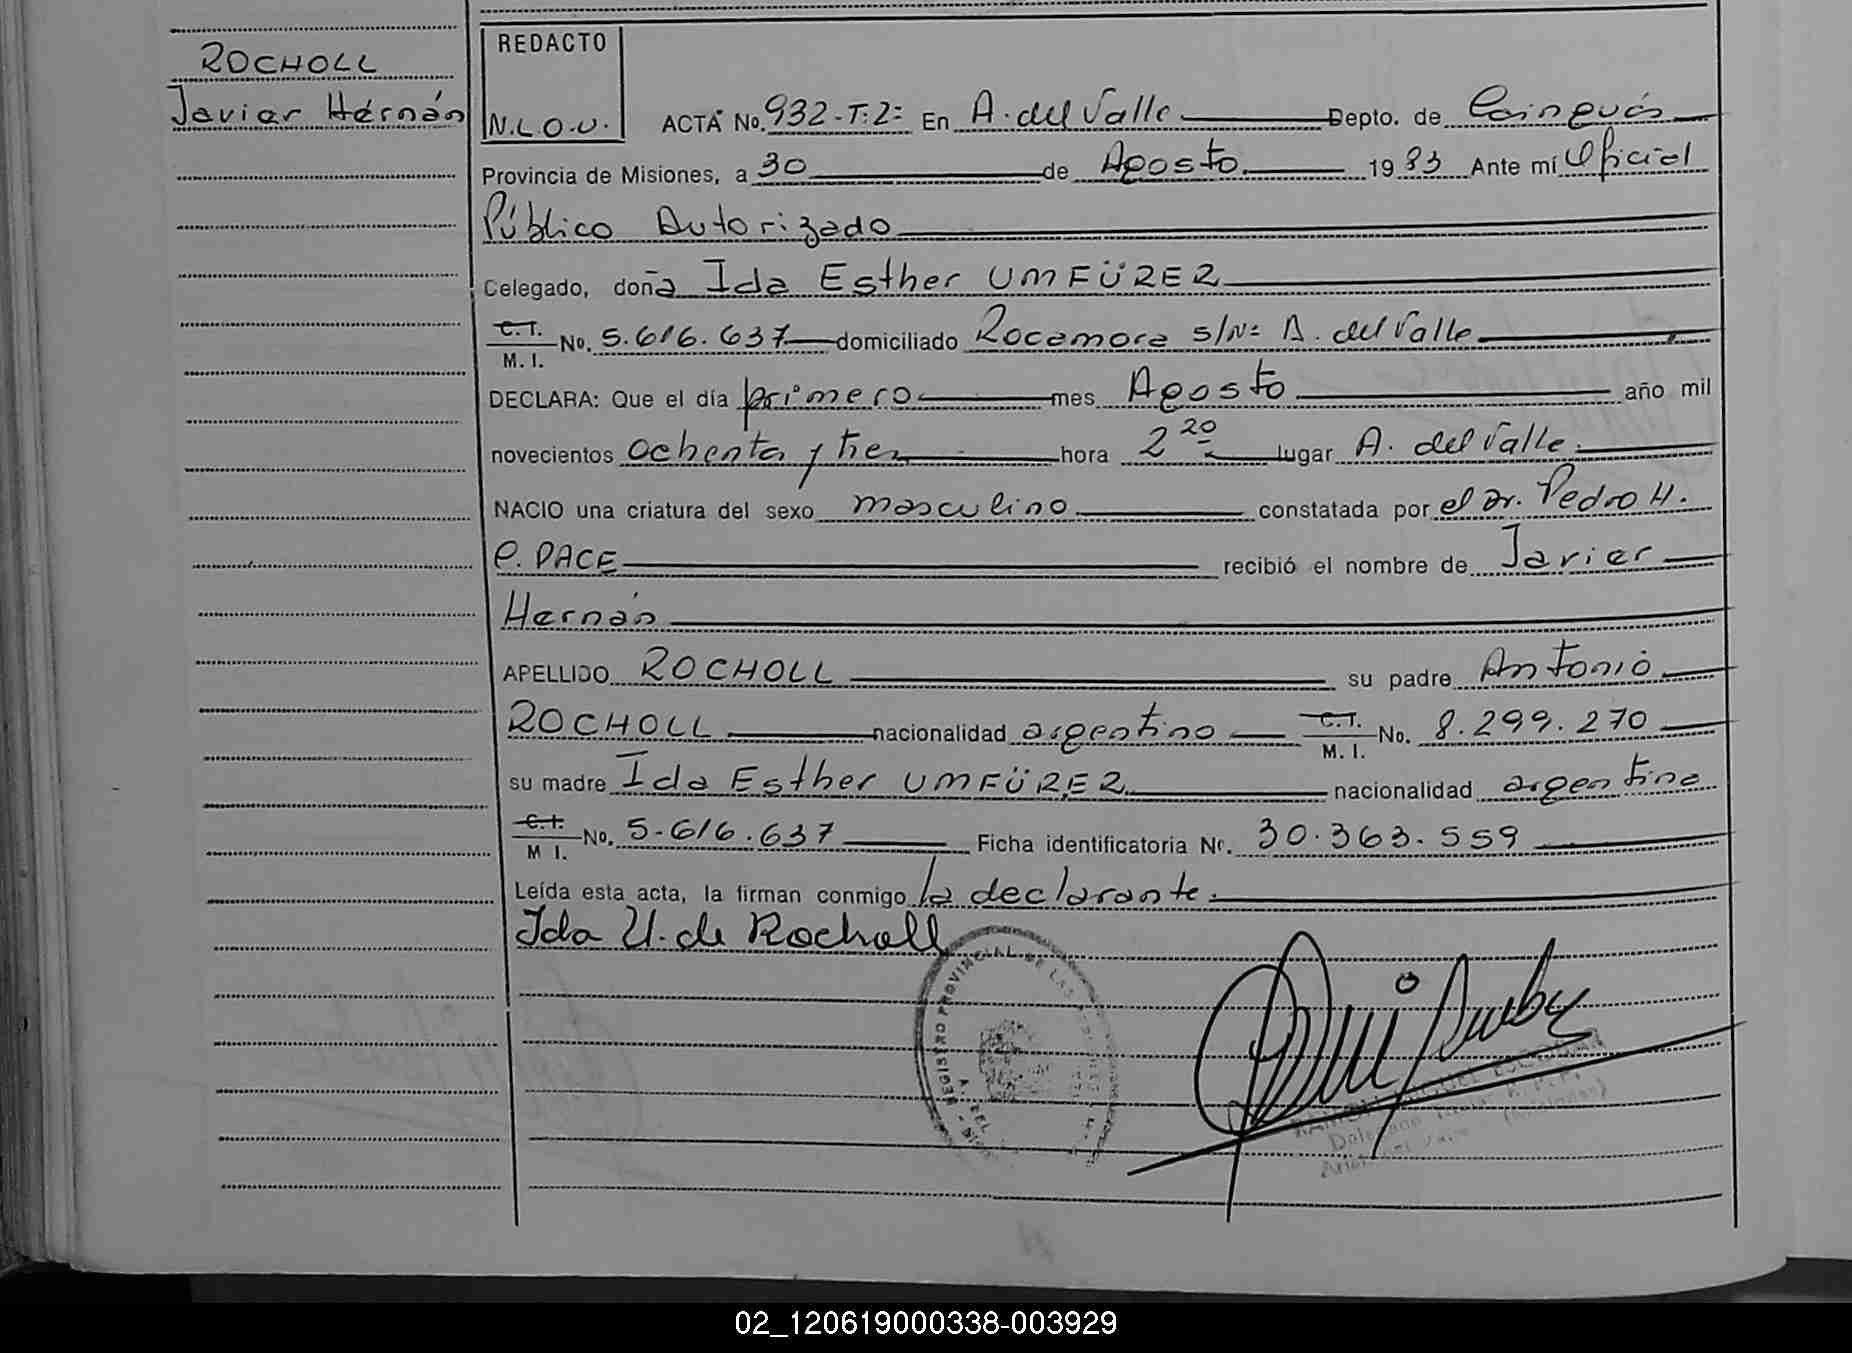 ROCHOLL
Javier Hernán
REDACTO
N.L.O.U.
ACTA No. 932-T:2= En A. del Valle Depto. de Cainguás
Provincia de Misiones, a 30 de Agosto 1983 Ante mí Oficial
Público Autorizado
Celegado, doña Ida Esther UMFÜRER
C.I. M. I. No. 5.616.637 domiciliado Rocamora s/Nº A. del Valle
DECLARA: Que el día primero mes Agosto año mil
novecientos ochenta y tres hora 2 20 lugar A. del Valle.
NACIO una criatura del sexo masculino constatada por el Dr. Pedro H.
E. PACE recibió el nombre de Javier
Hernán
APELLIDO ROCHOLL su padre Antonio
ROCHOLL nacionalidad argentino C.I. M. I. No. 8.299.270
su madre Ida Esther UMFÜRER nacionalidad argentina
C.I. M I. No. 5.616.637 Ficha identificatoria Nr. 30.363.559
Leída esta acta, la firman conmigo la declarante.
Ida U. de Rocholl
REGISTRO PROVINCIAL DE LAS
A. DEL
02_120619000338-003929